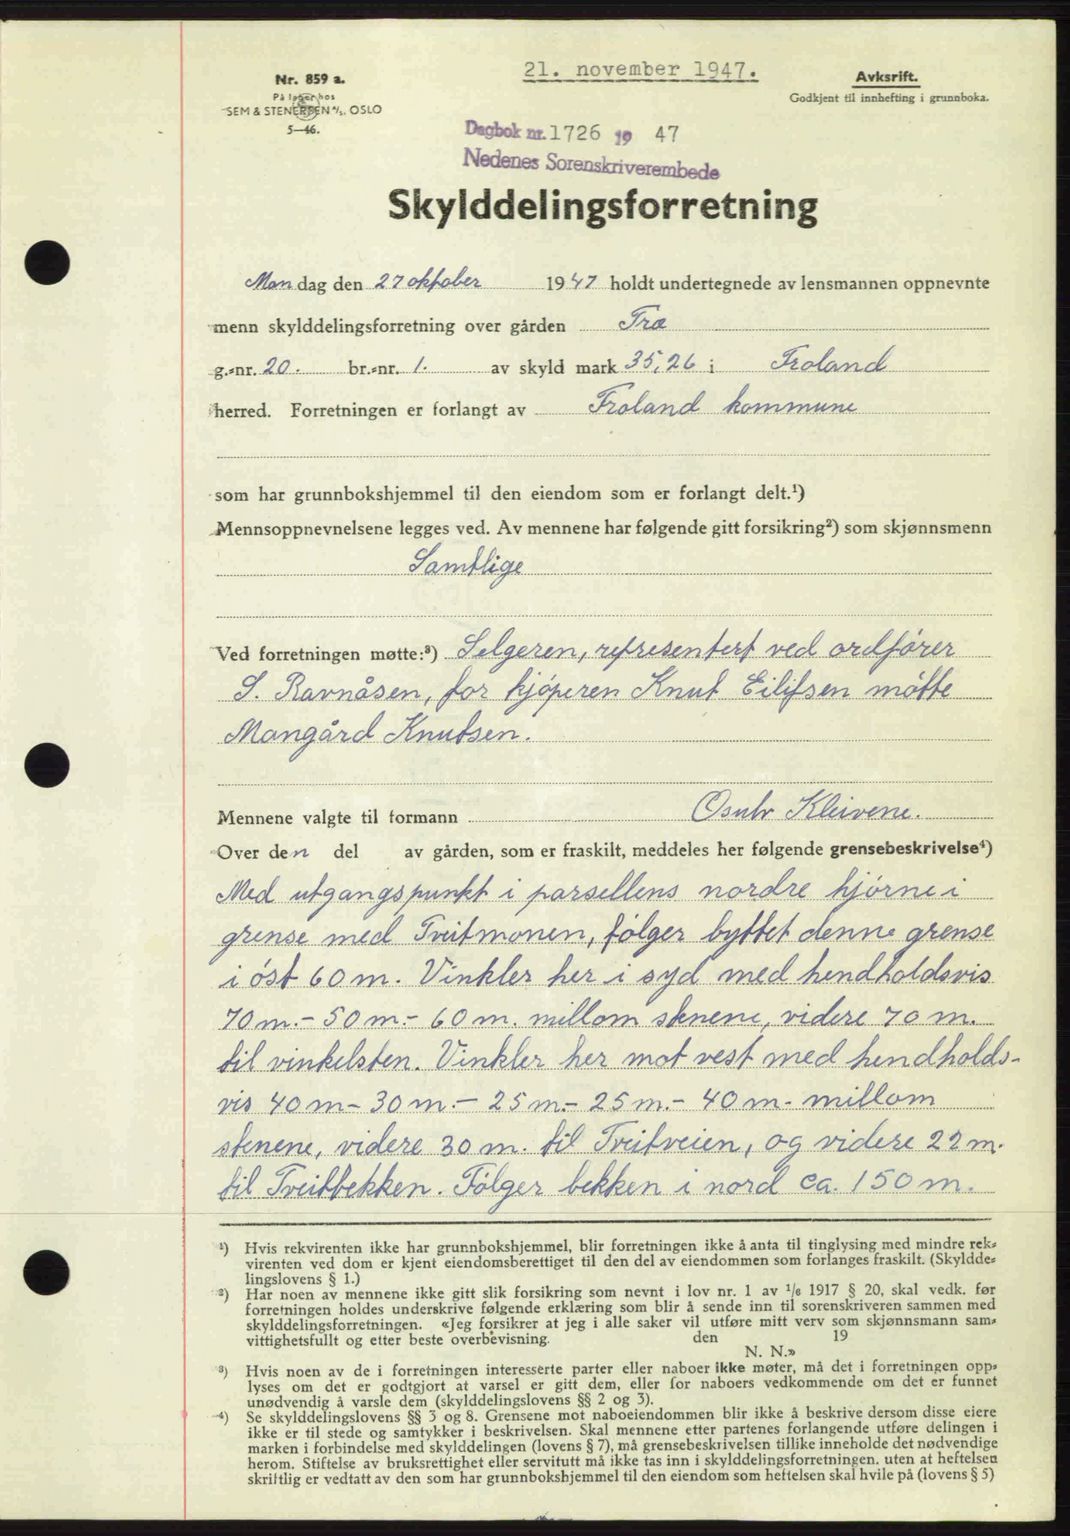 21. november 1947.
Nr. 859 a.
På lager hos
SEM & STENERSEN A/S, OSLO
5—46.
Avkskrift.
Godkjent til innhefting i grunnboka.
Dagbok nr. 1726 19 47
Nedenes Sorenskriverembede
Skylddelingsforretning
Mandag den 27 oktober 1947 holdt undertegnede av lensmannen oppnevnte
menn skylddelingsforretning over gården Tra
g.-nr. 20. br.-nr. 1. av skyld mark 35,26 i Froland
herred. Forretningen er forlangt av Froland kommune
som har grunnbokshjemmel til den eiendom som er forlangt delt.¹)
Mennsoppnevnelsene legges ved. Av mennene har følgende gitt forsikring²) som skjønnsmenn
Samtlige
Ved forretningen møtte:³) Selgeren, representert ved ordfører
S. Ravnåsen, for kjøperen Knut Eilifsen møtte
Mangård Knutsen.
Mennene valgte til formann Osulv Kleivene.
Over den del av gården, som er fraskilt, meddeles her følgende grensebeskrivelse⁴)
Med utgangspunkt i parsellens nordre hjørne i
grense med Tveitmonen, følger byttet denne grense
i øst 60 m. Vinkler her i syd med hendholdsvis
70 m.- 50 m.- 60 m. millom stenene, videre 70 m.
til vinkelsten. Vinkler her mot vest med hendholds-
vis 40 m- 30 m.- 25 m.- 25 m.- 40 m- millom
stenene, videre 30 m. til Tveitveien, og videre 22 m.
til Tveitbekken. Følger bekken i nord ca. 150 m.
¹) Hvis rekvirenten ikke har grunnbokshjemmel, blir forretningen ikke å anta til tinglysing med mindre rek-
virenten ved dom er kjent eiendomsberettiget til den del av eiendommen som forlanges fraskilt. (Skyldde-
lingslovens § 1.)
²) Har noen av mennene ikke gitt slik forsikring som nevnt i lov nr. 1 av 1/6 1917 § 20, skal vedk. før
forretningen holdes underskrive følgende erklæring som blir å sende inn til sorenskriveren sammen med
skylddelingsforretningen. «Jeg forsikrer at jeg i alle saker vil utføre mitt verv som skjønnsmann sam-
vittighetsfullt og etter beste overbevisning. den 19
N. N.»
³) Hvis noen av de i forretningen interesserte parter eller naboer ikke møter, må det i forretningen opp-
lyses om det er godtgjort at varsel er gitt dem, eller for naboers vedkommende om det er funnet
unødvendig å varsle dem (skylddelingslovens §§ 2 og 3).
⁴) Se skylddelingslovens §§ 3 og 8. Grensene mot naboeiendommen blir ikke å beskrive dersom disse eiere
ikke er til stede og samtykker i beskrivelsen. Skal mennene etter partenes forlangende utføre delingen i
marken i forbindelse med skylddelingen (lovens § 7), må grensebeskrivelsen tillike inneholde det nødvendige
herom. Stiftelse av bruksrettighet eller servitutt må ikke tas inn i skylddelingsforretningen, uten at heftelsen
skriftlig er vedtatt av den som har grunnbokshjemmel til den eiendom som heftelsen skal hvile på (lovens § 5)